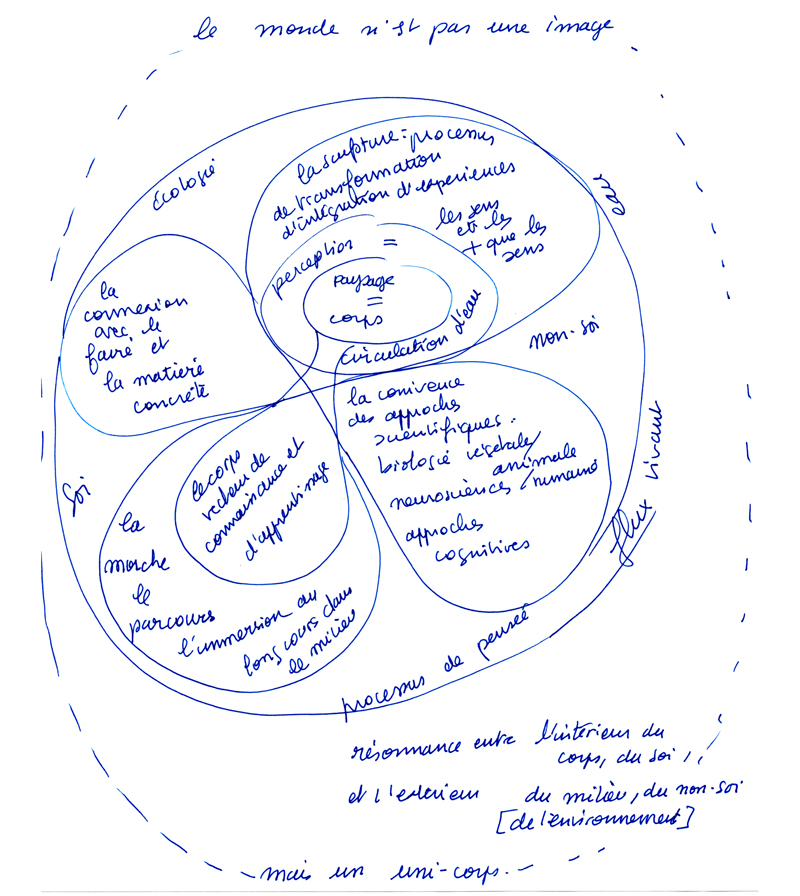 le monde n'est pas une image
écologie
eau
la sculpture = processus
de transformation
d'intégration d'expériences
perception = les sens
et les
+ que les
sens
paysage
=
corps
circulation d'eau
la
connexion
avec le
faire et
la matière
concrète
non-soi
la conivence
des approches
scientifiques :
biologie végétale/
animale
neurosciences / humaine
approches
cognitives
soi
le corps
vecteur de
connaissance et
d'apprentissage
la
marche
le
parcours
l'immersion au
long cours dans
le milieu
flux vivant
processus de pensée
résonnance entre l'intérieur du
corps, du soi,
et l'extérieur du milieu, du non-soi
[de l'environnement]
mais un uni-corps.